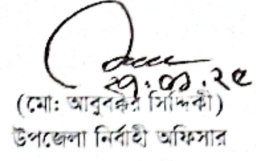 ২৭.০১.২৫
(মো: আবুবক্কর সিদ্দিকী)
উপজেলা নির্বাহী অফিসার